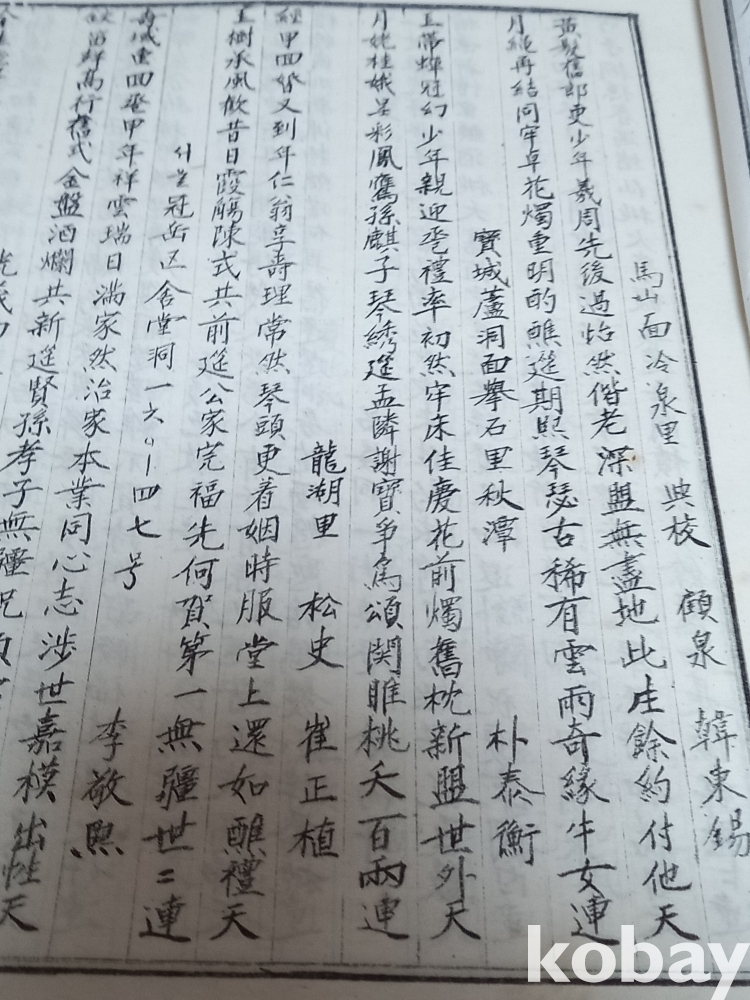 馬山面冷泉里 典校 顧泉 韓東錫
黃髮舊郎更少年羲周先後過怡然偕老深盟無盡地此生餘約付他天
月繩再結同牢卓花燭重明酌醮筵期熙琴瑟古稀有雲雨奇緣牛女連
寶城蘆洞面擧石里秋潭 朴泰衡
玉帶蟬冠幻少年親迎巹禮率初然牢床佳慶花前燭舊枕新盟世外天
月姥桂娥呈彩鳳鷹孫麒子琴綉筵孟隣謝寶爭爲頌関睢桃夭百兩連
龍湖里 松史 崔正植
經甲四婚又到年仁翁享壽理常然琴頭更着姻時服堂上還如醮禮天
玉樹承風歡昔日霞觴陳式共前筵公家完福先何賀第一無疆世〻連
서울冠岳区舍堂洞一六〇一四七号 李敬熙
壽域重回甲年祥雲瑞日滿家然治家本業同心志涉世嘉模出性天
高行舊式金盤酒爛共新筵賢孫孝子無疆祝
kobay